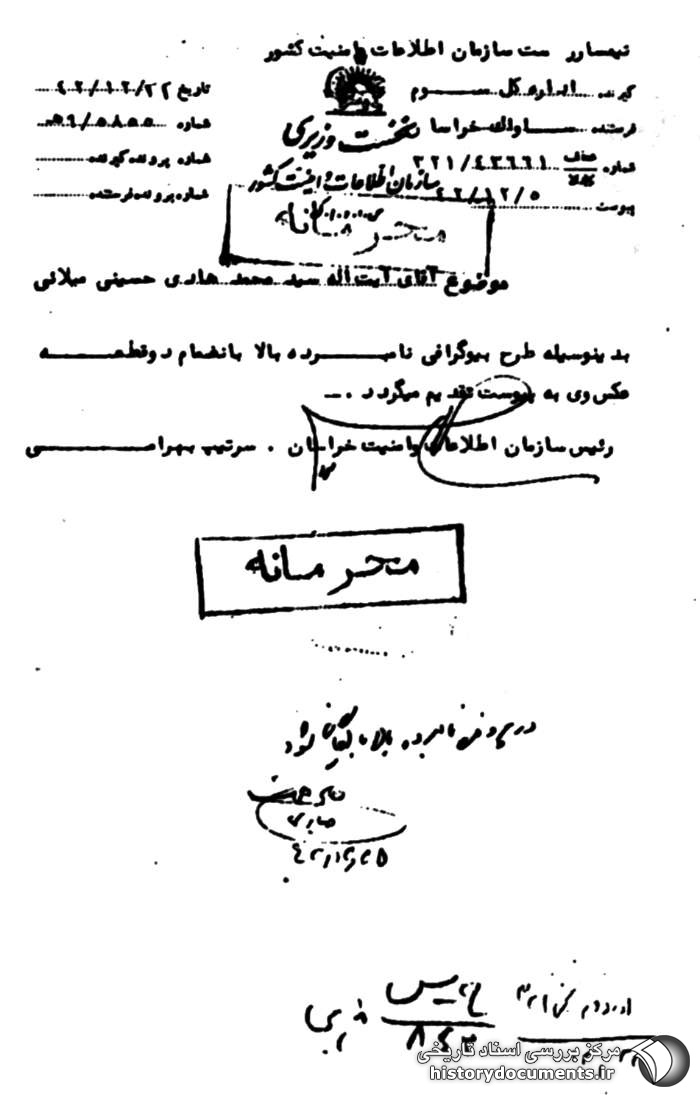 تیمسار ریاست سازمان اطلاعات و امنیت کشور
گیرنده اداره کل سوم
فرستنده ساواک خراسان
شماره ۳۲۱/۴۳۶۶۱
پیوست ۴۲/۱۲/۵
نخست وزیری
سازمان اطلاعات و امنیت کشور
محرمانه
تاریخ ۴۲/۱۲/۲۲
شماره
شماره پرونده گیرنده
شماره پرونده فرستنده
موضوع آقای آیت اله سید محمد هادی حسینی میلانی
بدینوسیله طرح بیوگرافی نامبرده بالا بانضمام دوقطعه
عکس وی به پیوست تقدیم میگردد .
رئیس سازمان اطلاعات و امنیت خراسان . سرتیپ بهرامی
محرمانه
در پرونده نامبرده بالا بایگانی شود
صابری
مرکز بررسی اسناد تاریخی
historydocuments.ir